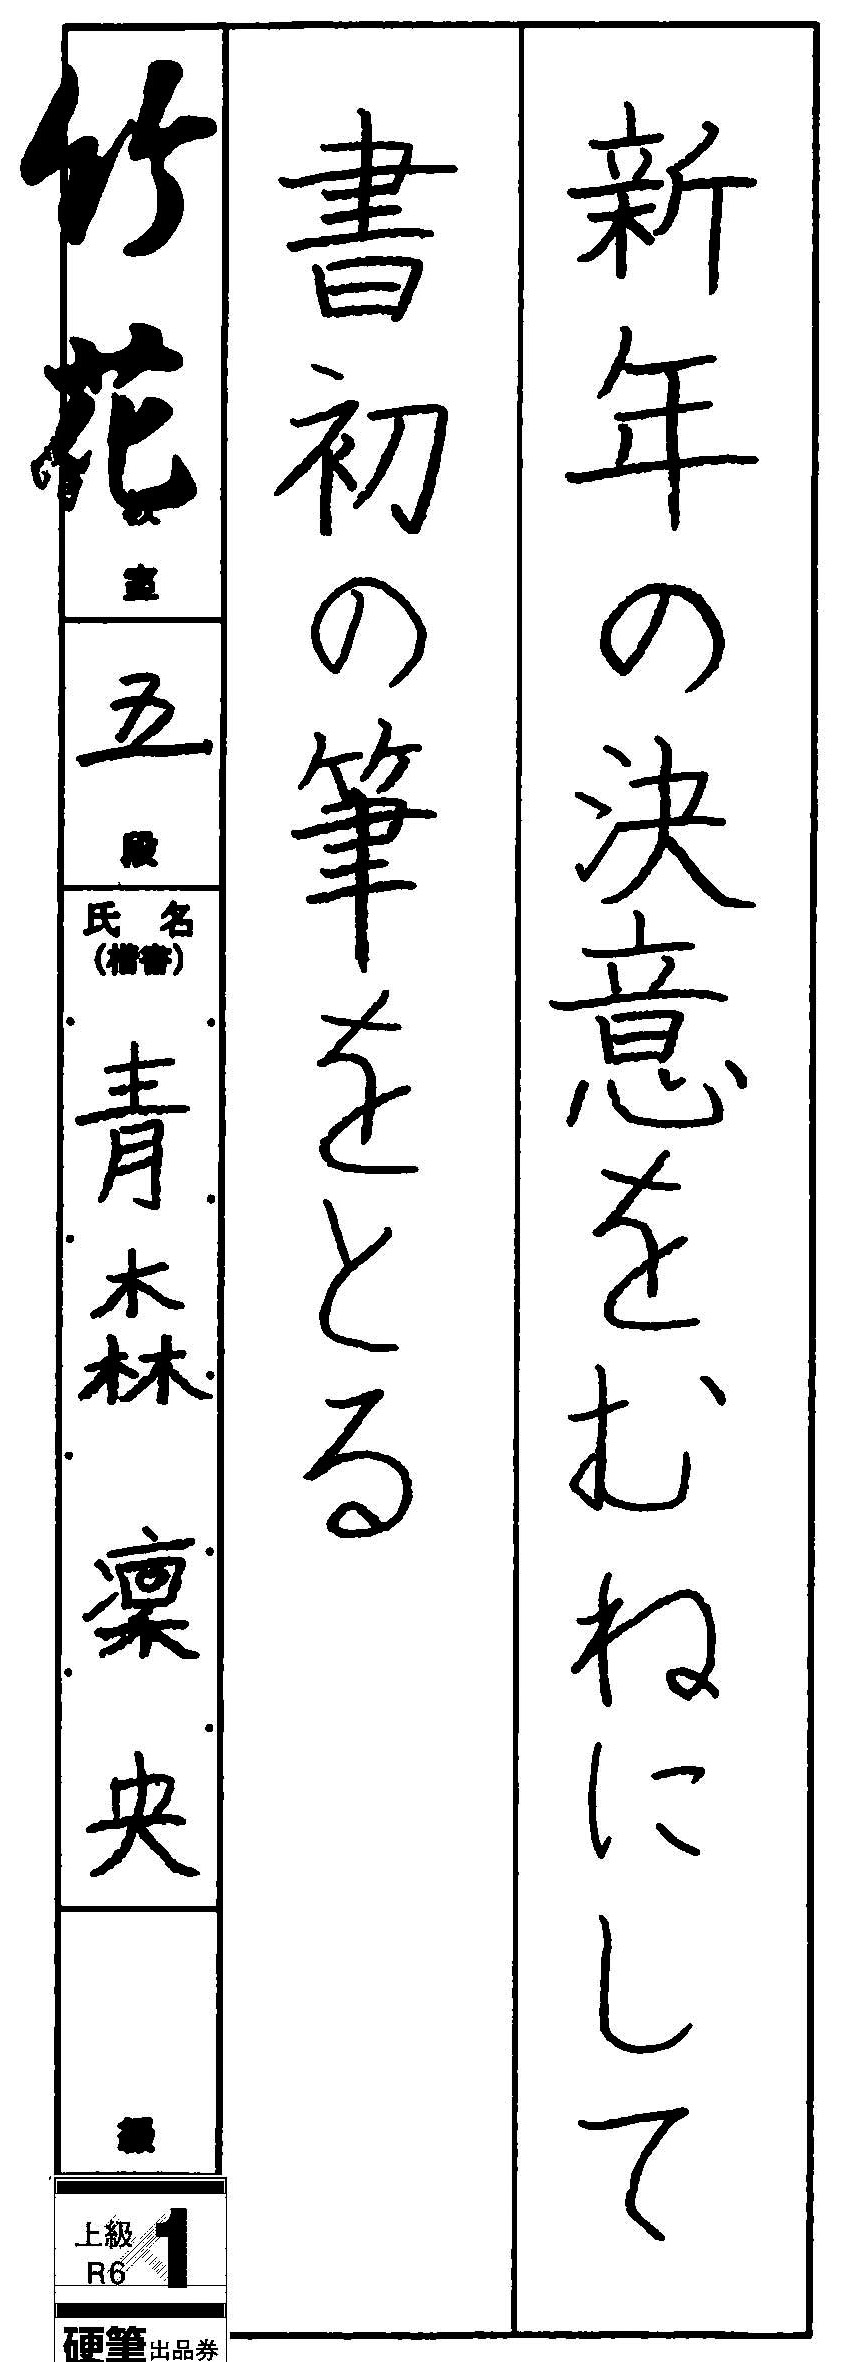 新年の決意をむねにして
書初の筆をとる
竹花
教室
五段
氏名
(楷書)
青森凜央
級
上級
R6
1
硬筆出品券